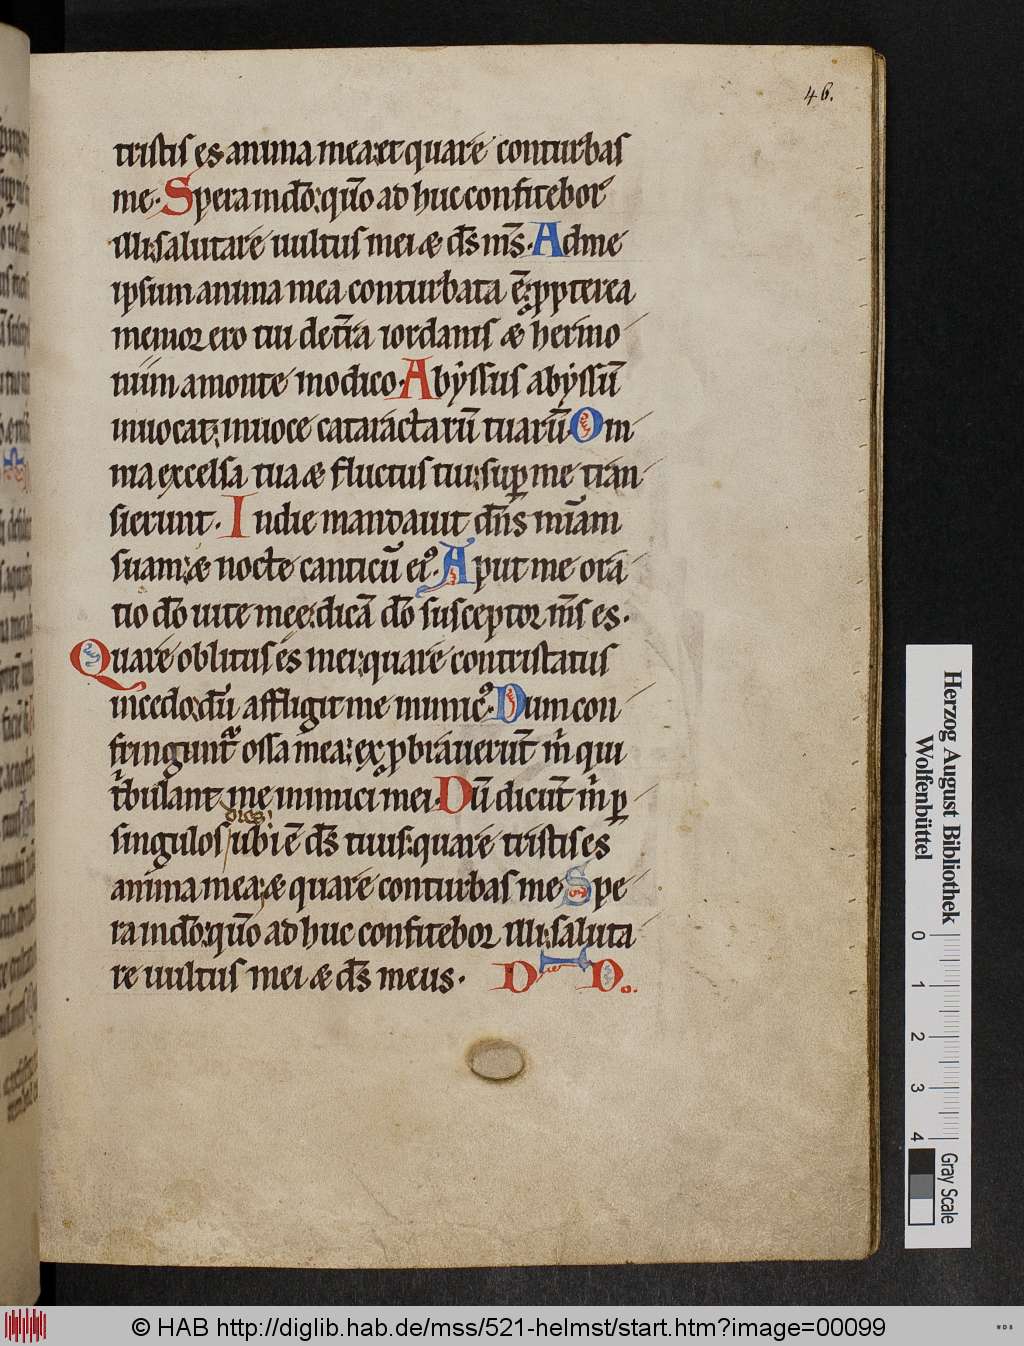 46.
tristis es anima mea: et quare conturbas
me. Spera in dō: qm̄o ad huc confitebor
illi: salutare uultus mei & ds̄ ms̄. Ad me
ipsum anima mea conturbata ē: ꝓpterea
memor ero tui de tr̄ra iordanis & hermo
niim a monte modico. Abẏssus abẏssū
inuocat; in uoce cataractarū tuarū. Om
nia excelsa tua & fluctus tui: suꝑ me tran
sierunt. In die mandauit dn̄s mīam
suam: & nocte canticū eiꝰ. Aput me ora
tio dō uite mee: dicā dō susceptor ms̄ es.
Quare oblitus es mei: quare contristatus
incedo: dū affligit me inimicꝰ. Dum con
fringunt̄ ossa mea: exꝓbrauerūt m̄ qui
tͥbulant me inimici mei. Dū dicūt m̄ ꝑ
dies!
singulos ubi ē ds̄ tuus: quare tristis es
anima mea: & quare conturbas me Spe
ra in dō: qm̄o ad huc confitebor illi: saluta
re uultus mei & ds̄ meus. D I D.
Herzog August Bibliothek
Wolfenbüttel
0 1 2 3 4
Gray Scale
© HAB http://diglib.hab.de/mss/521-helmst/start.htm?image=00099